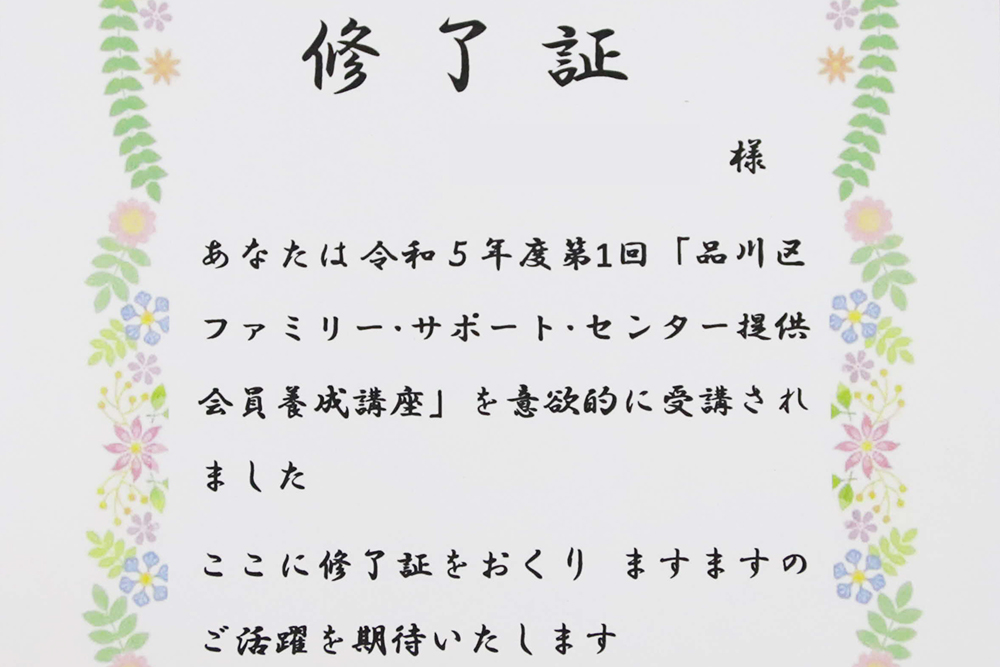 修了証
様
あなたは令和５年度第1回「品川区
ファミリー・サポート・センター提供
会員養成講座」を意欲的に受講され
ました
ここに修了証をおくり ますますの
ご活躍を期待いたします